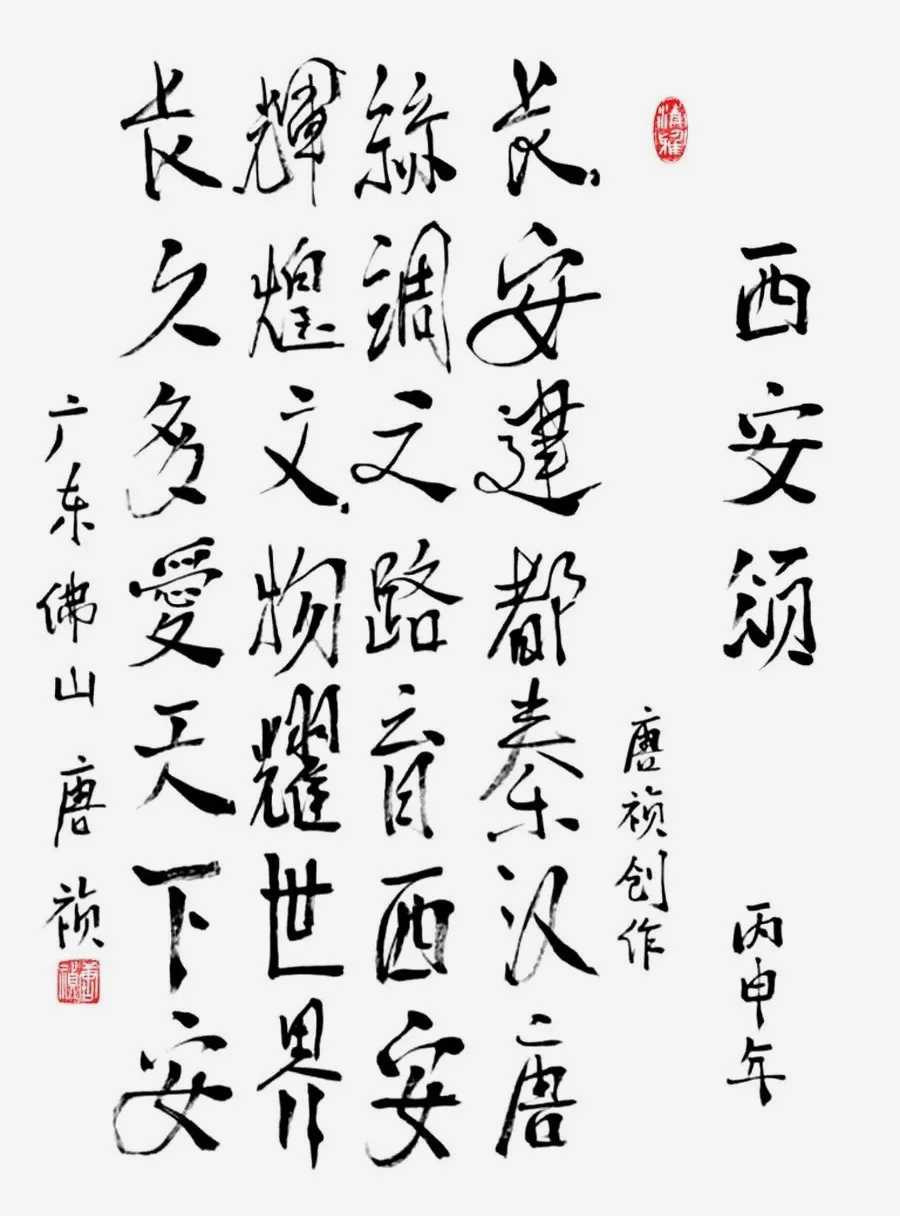 西安颂 丙申年
唐祯创作
长安建都秦汉唐
絲綢之路育西安
輝煌文物耀世界
长久多愛天下安
广东佛山 唐祯
唐禎